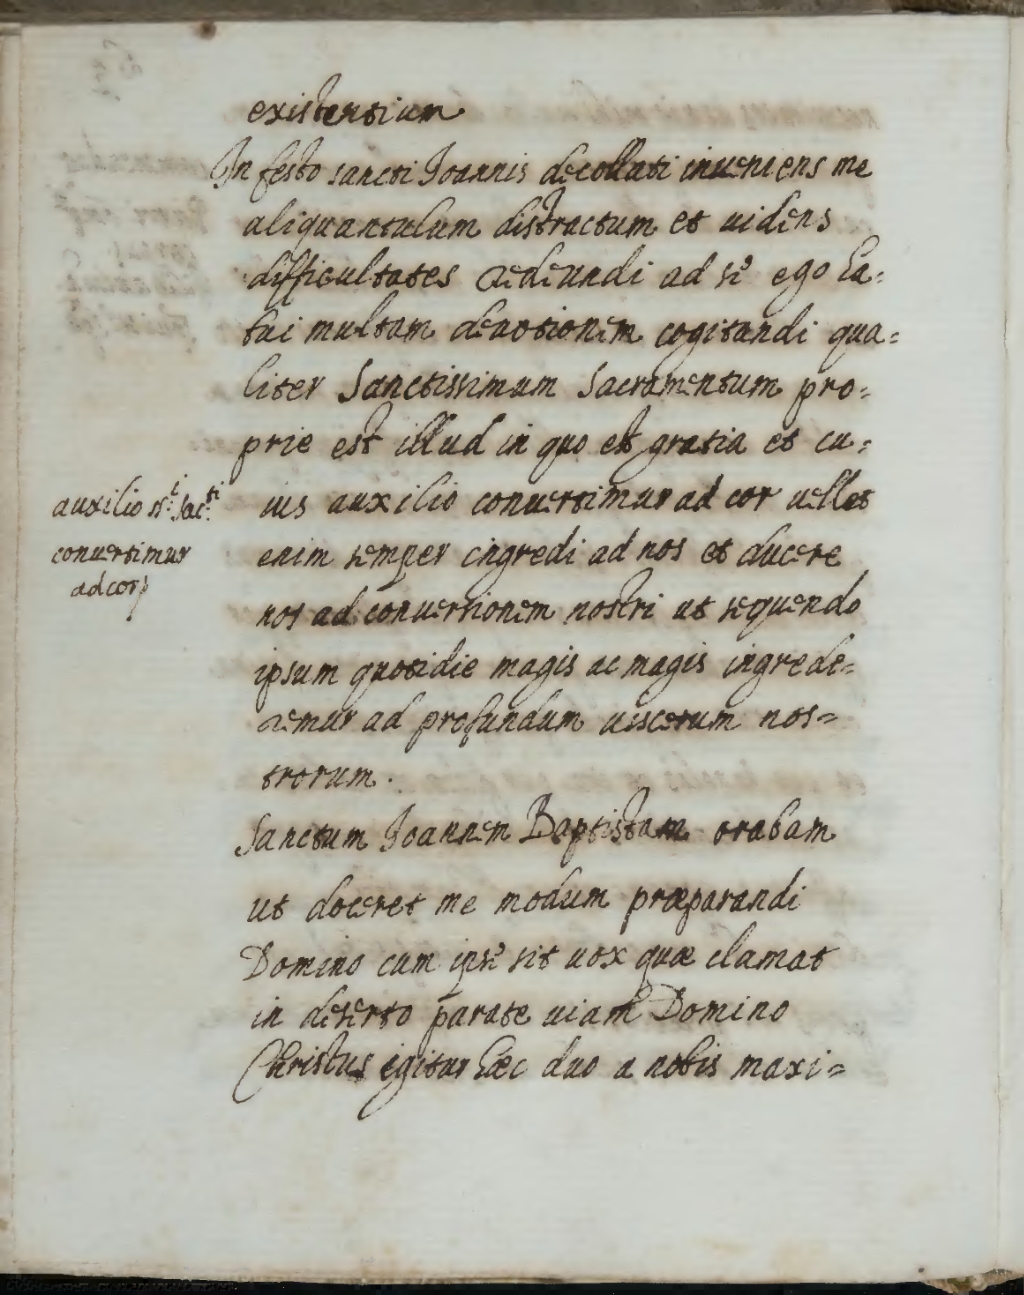 existentium
In festo sancti Joannis decollati inueniens me
aliquantulum distractum et uidens
difficultates redeundi ad se ego ha=
bui multam deuotionem cogitandi qua=
liter Sanctissimum Sacramentum pro=
prie est illud in quo est gratia et cu=
ius auxilio conuertimur ad cor uellet
enim semper ingredi ad nos et ducere
nos ad conuersionem nostri ut sequendo
ipsum quotidie magis ac magis ingrede=
remur ad profundum uiscerum nos=
trorum.
Sanctum Joannem Baptistam orabam
ut doceret me modum præparandi
Domino cum ipse sit uox quæ clamat
in deserto parate uiam Domino
Christus igitur hæc duo a nobis maxi=
auxilio SS.i Sac.ti
conuertimur
ad cor